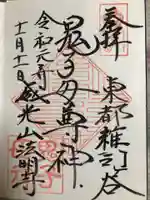 奉拝
東都雑司ヶ谷
鬼子母尊神
威光山法明寺
令和元年
十一月十一日